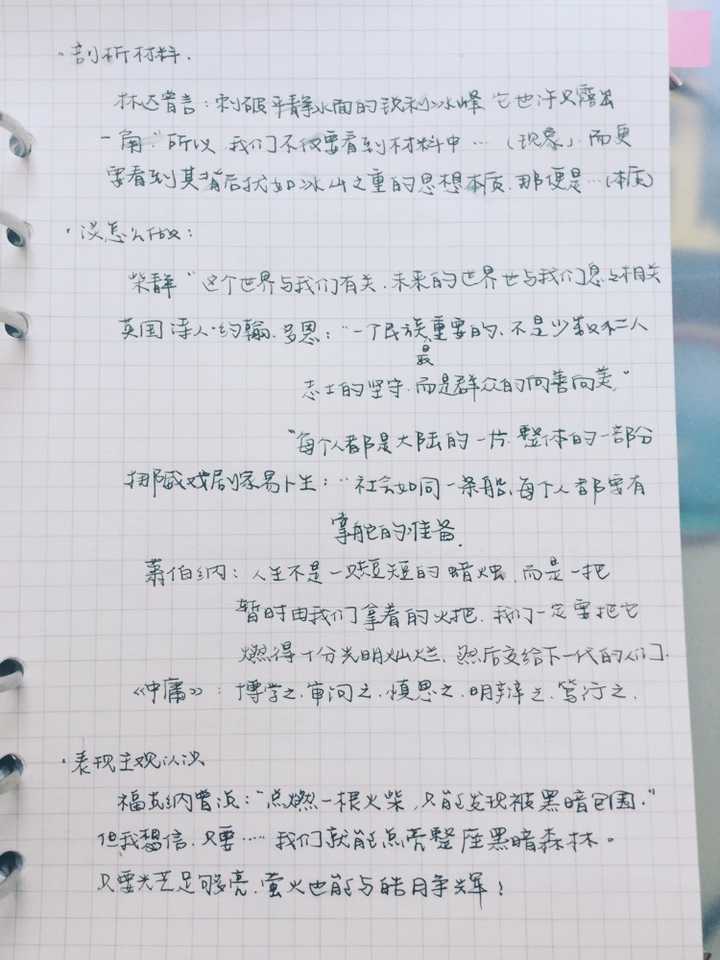 ·剖析材料.
林达曾言:刺破平静水面的锐利冰峰 它也许只露出
一角."所以 我们不仅要看到材料中…(现象).而更
要看到其背后犹如冰山之重的思想本质.那便是…(本质)
·谈怎么做:
柴静"这个世界与我们有关.未来的世界也与我们息息相关
英国诗人·约翰.多恩:"一个民族最重要的.不是少数仁人
志士的坚守.而是群众的向善向美"
"每个人都是大陆的一片.整体的一部分
挪威戏剧家易卜生:"社会如同一条船,每个人都要有
掌舵的准备.
萧伯纳:人生不是一支短短的蜡烛,而是一把
暂时由我们拿着的火把.我们一定要把它
燃得十分光明灿烂.然后交给下一代的人们.
《中庸》:博学之.审问之.慎思之.明辩之.笃行之.
·表现主观认识
福克纳曾说:"点燃一根火柴,只能发现被黑暗包围."
但我想信.只要……我们就能点亮整座黑暗森林。
只要光芒足够亮.萤火也能与皓月争辉!